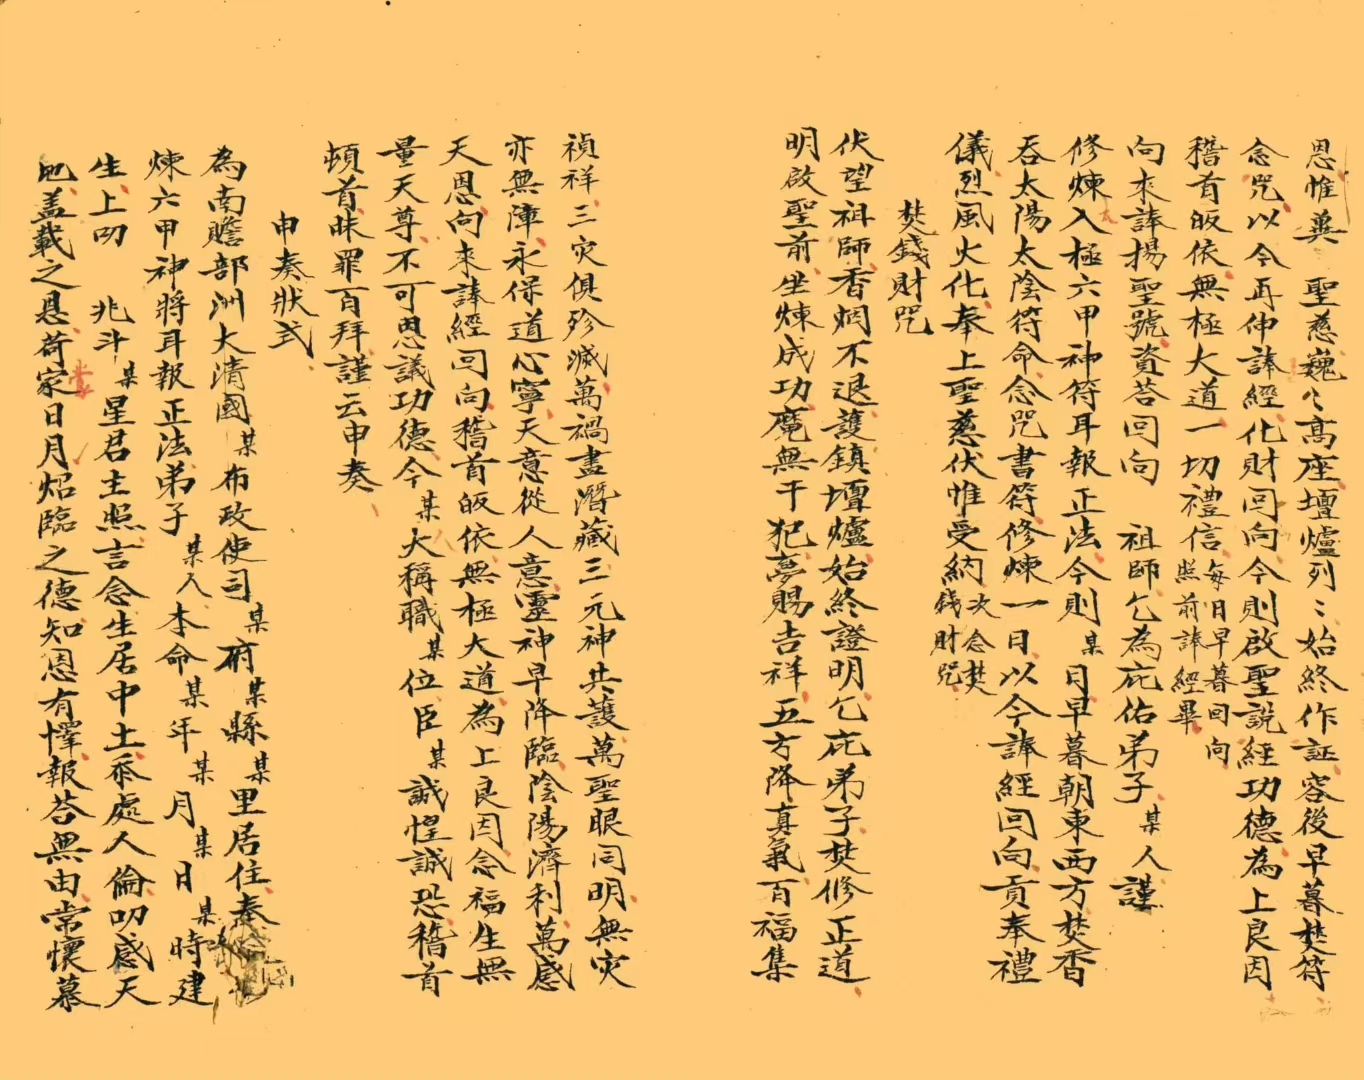 恩惟冀　聖慈巍〻高座壇爐列〻始終作証容後早暮焚符
念咒以今再伸諱經化財囘向今則啟聖説經功德為上良因
稽首皈依無極大道一切禮信每日早暮囘向照前諱經畢
向來諱揚聖號資荅囘向　祖師乞為庇佑弟子某人謹
修煉入極六甲神符耳報正法今則某日早暮朝東西方焚香
吞太陽太陰符命念咒書符修煉一日以今諱經囘向貢奉禮
儀烈風火化奉上聖慈伏惟受納次念焚錢財咒
焚錢財咒
伏望祖師香烟不退護鎮壇爐始終證明乞庇弟子焚修正道
明啟聖前坐煉成功魔無干犯夢賜吉祥五方降真氣百福集
禎祥三灾俱殄滅萬禍盡潛藏三元神共護萬聖眼同明無灾
亦無障永保道心寧天意從人意靈神早降臨陰陽濟利萬感
天恩向來諱經囘向稽首皈依無極大道為上良因念福生無
量天尊不可思議功德今某大稱職某位臣某誠惶誠恐稽首
頓首昧罪百拜謹云申奏
申奏狀式
為南贍部洲大清國某布政使司某府某縣某里居住奉
煉六甲神將耳報正法弟子某人本命某年某月某日某時建
生上叨　兆斗某星君主照言念生居中土忝處人倫叨感天
地蓋載之恩荷蒙日月炤臨之德知恩有懌報荅無由常懷慕